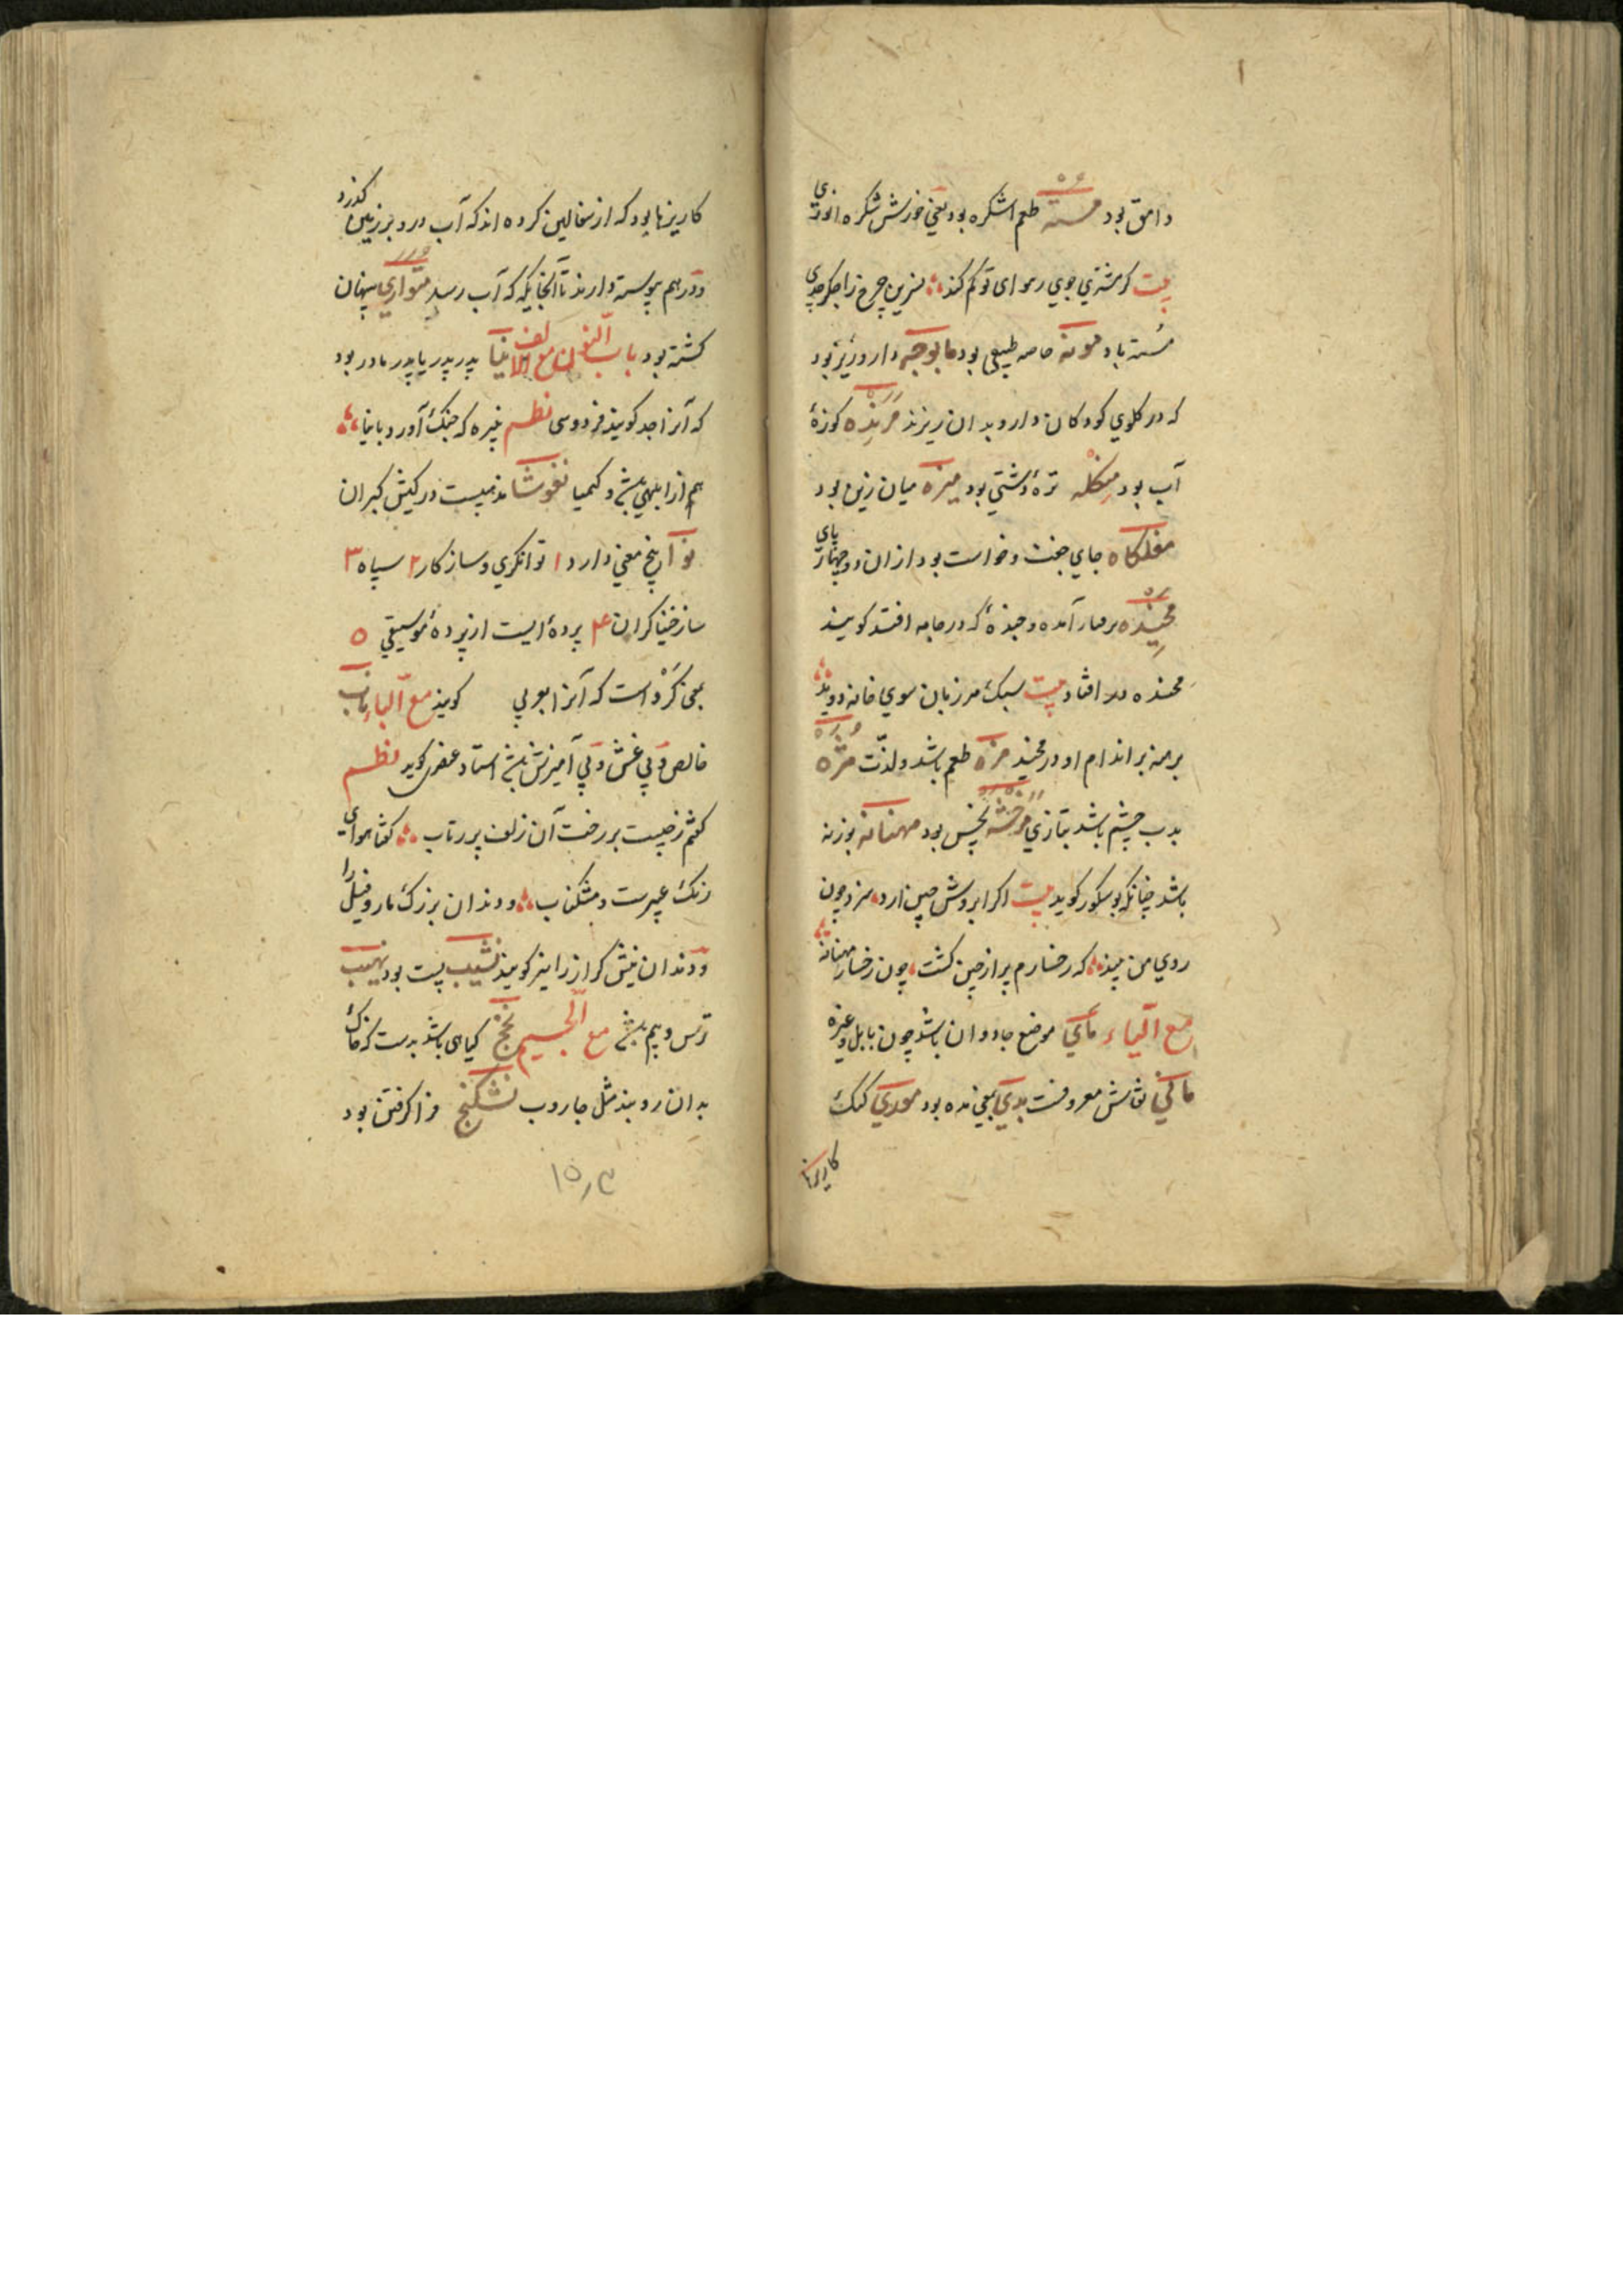 وامق بود مسته طعم اشکره بود یعنی خورش شکره
بیت کر مشتری جوی رهوای تو کم کند نسرین چرخ را جکر جدی
مسته باد مونه خاصه طبیعی بود مابوجه دارو ریز بود
که در کلوی کودکان دارو بدان ریزند مرنده کوزهٔ
آب بود منکله ترهٔ دشتی بود میزه میان زین بود
مغلکاه جای جفت وخواست بود از ان دو چهار پای
مخیده برفتار آمده وجنبدهٔ که در جامه افتد کویند
مخنده در افتاد بیت سبک مرزبان سوی خانه دوید
برهنه بر اندام او در مخید مزه طعم باشد ولذت مژه
بدب چشم باشد بتازی مرخشه نحس بود مهنانه بوزنه
باشد چنانکه بوشکور کوید بیت اکر ابروش چین ارد سزد چون
روی من بیند که رخسارم پر از چین کشت چون رخسار مهنانه
مع الیاء مای موضع جادوان باشد چون بابل وغیره
مانی نقاش معروفست مدی بمعنی مده بود موری کنک
کاریزها
کاریزها بود که از سفالین کرده اند که آب درو بر زمین کذرد
ودر هم پوسته دارند تا آنجایکه که آب رسد متواری پنهان
کشته بود باب النون مع الالف نیا پدر پدر یا پدر مادر بود
که آنرا جد کویند فردوسی نظم نبیره که جنک آورد بانیا
هم از ابلهی باشد و کیمیا نغوشا مذهبیست در کیش کبران
نوا پنج معنی دارد ۱ توانکری وساز کار ۲ سپاه ۳
ساز خنیاکران ۴ پردهٔ ایست از پردهٔ موسیقی ۵
بمعنی کرو است که آنرا بعربی کویند مع الباء ناب
خالص وبی غش وبی آمیزش باشد استاد عنصری کوید نظم
کفتم ز چیست بر رخت آن زلف پر ز تاب کفتا هوای
رنک عبیرست ومشکناب ودندان بزرک مار وفیل را
ودندان نیش کراز را نیز کویند نشیب پست بود نهیب
ترس وبیم باشد مع الجیم نخج کیاهی باشد بدست که خاک
بدان روبند مثل جاروب نشکنج فرا کرفتن بود